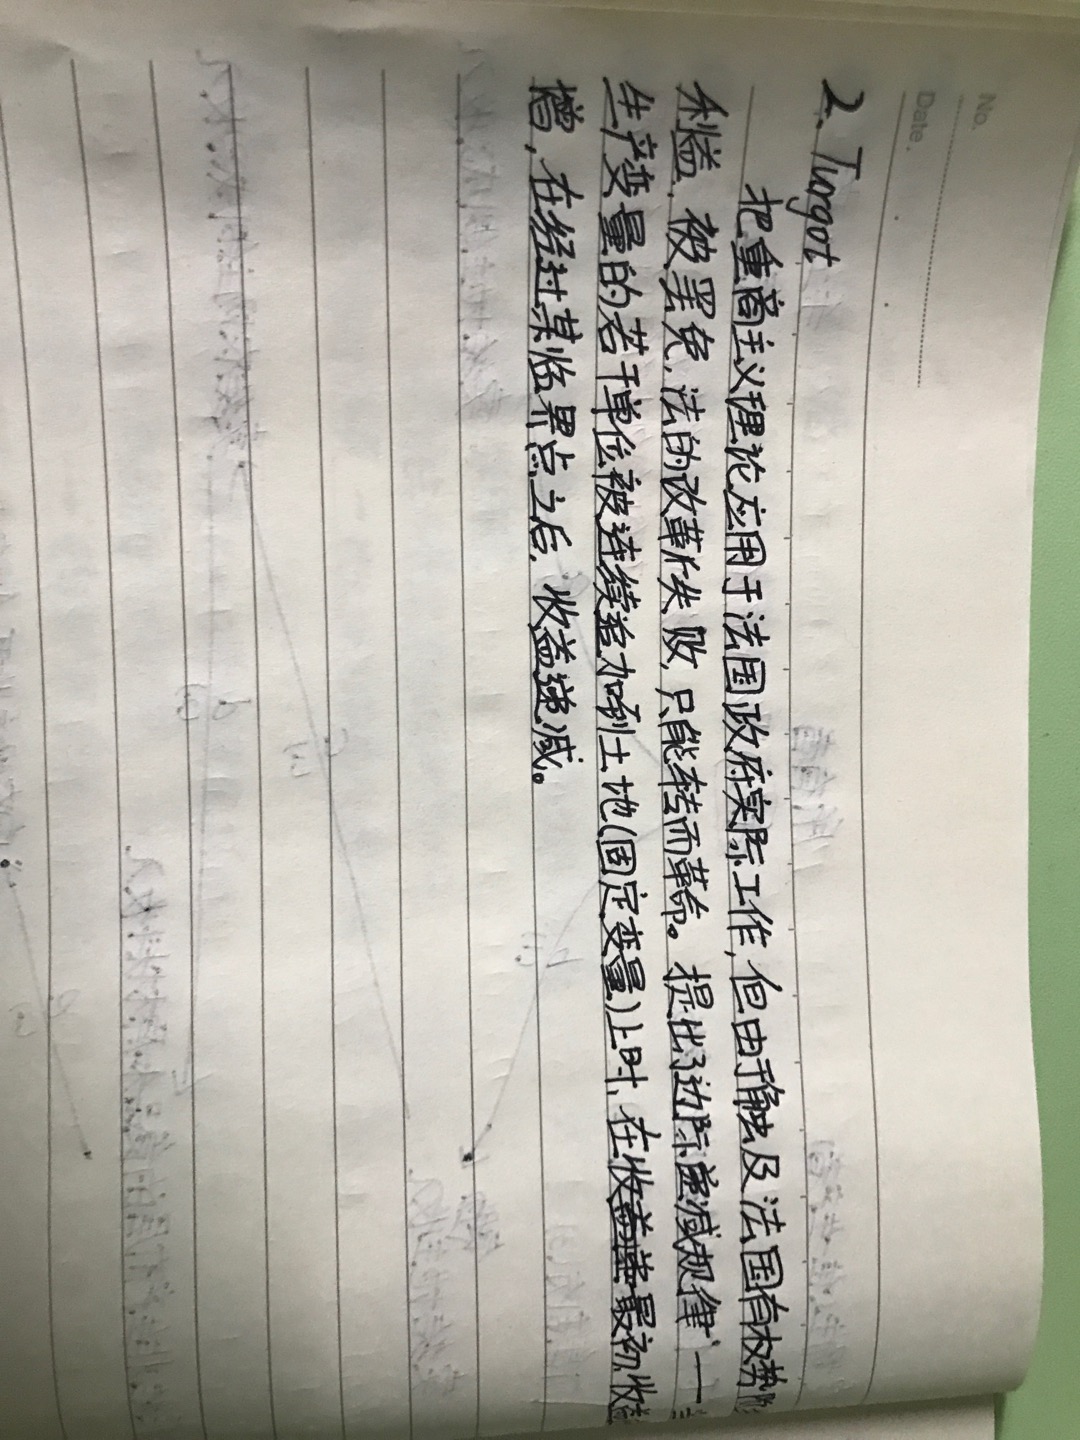 No.
Date.
2. Turgot
把重商主义理论应用于法国政府实际工作,但由于触及法国有权势阶
利益,被罢免,法的改革失败,只能转而革命。提出了边际递减规律——
生产变量的若干单位被连续追加到土地(固定变量)上时,在最初收益
增,在经过某临界点之后,收益递减。